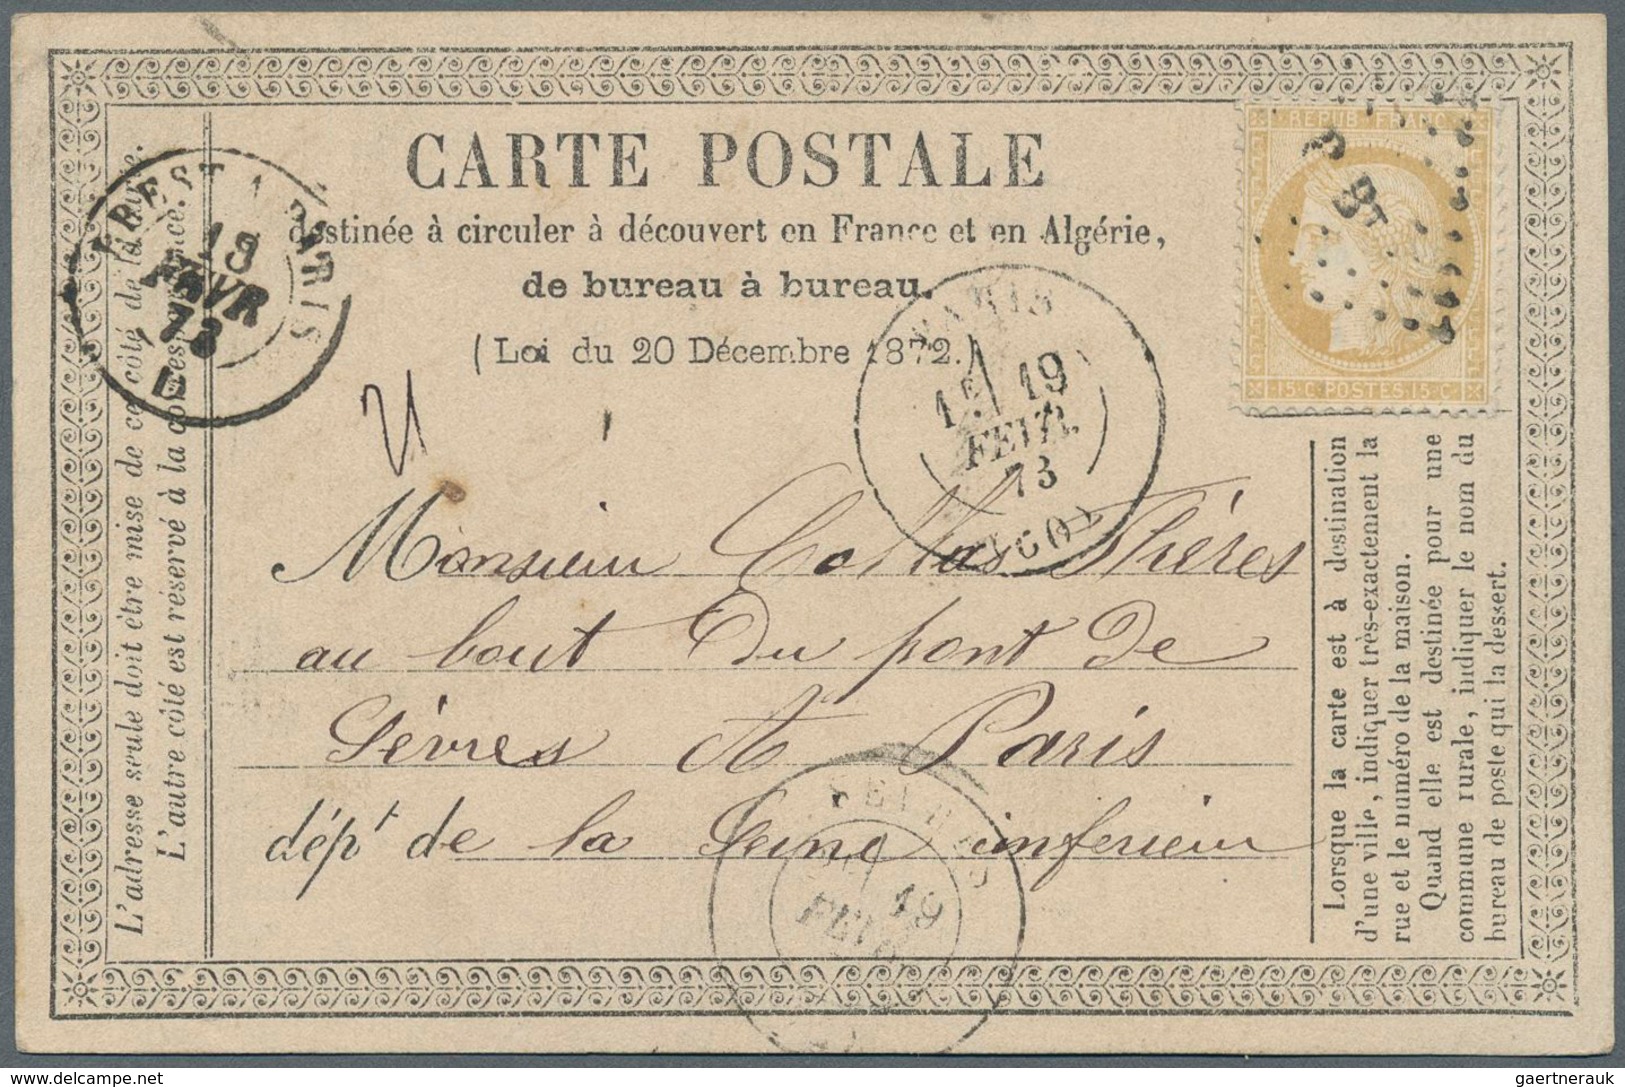 CARTE POSTALE
destinée à circuler à découvert en France et en Algérie,
de bureau à bureau.
(Loi du 20 Décembre 1872.)
REPUB. FRANC.
15 C POSTES 15 C
BREST A PARIS
19
FEVR
73
PARIS
19
FEVR.
73
(60)
Monsieur Collas Frères
au bout du pont de
Sèvres à Paris
dépt de la Seine inferieur
SEVRES
19
FEVR
L'adresse seule doit être mise de ce côté de la carte.
L'autre côté est réservé à la correspondance.
Lorsque la carte est à destination
d'une ville, indiquer très-exactement la
rue et le numéro de la maison.
Quand elle est destinée pour une
commune rurale, indiquer le nom du
bureau de poste qui la dessert.
gaertnerauk / delcampe.net